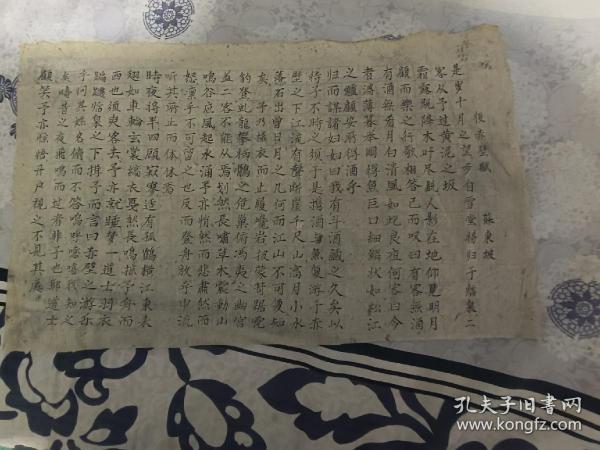 後赤壁賦 蘇東坡
是歲十月之望步自雪堂將归于臨皋二
客从予过黃泥之坂
霜露既降木叶尽脫人影在地仰見明月
顧而樂之行歌相答已而叹曰有客無酒
有酒無肴月白清風如此良夜何客曰今
者薄暮举網得魚巨口細鱗狀如松江
之鱸顧安所得酒乎
归而謀諸妇妇曰我有斗酒藏之久矣以
待子不時之須于是携酒与魚复游于赤
壁之下江流有聲断崖千尺山高月小水
落石出曾日月之几何而江山不可復知
矣 予乃攝衣而上履巉岩披蒙茸踞虎
豹登虬龍攀栖鶻之危巢俯馮夷之幽宮
盖二客不能从焉划然長啸草木震動山
鳴谷应風起水涌予亦悄然而悲肅然而
恐凛乎不可留之也反而登舟放乎中流
听其所止而休焉
時夜将半四顧寂寥适有孤鶴横江東来
翅如車輪玄裳縞衣戛然長鳴掠予舟而
西也須臾客去予亦就睡夢一道士羽衣
蹁躚临皋之下揖予而言曰赤壁之游乐
乎问其姓名俯而不答嗚呼噫嘻我知之
矣疇昔之夜飛鳴而过者非子也耶道士
顧笑予亦惊悟开户視之不見其處
孔夫子旧书网
www.kongfz.com